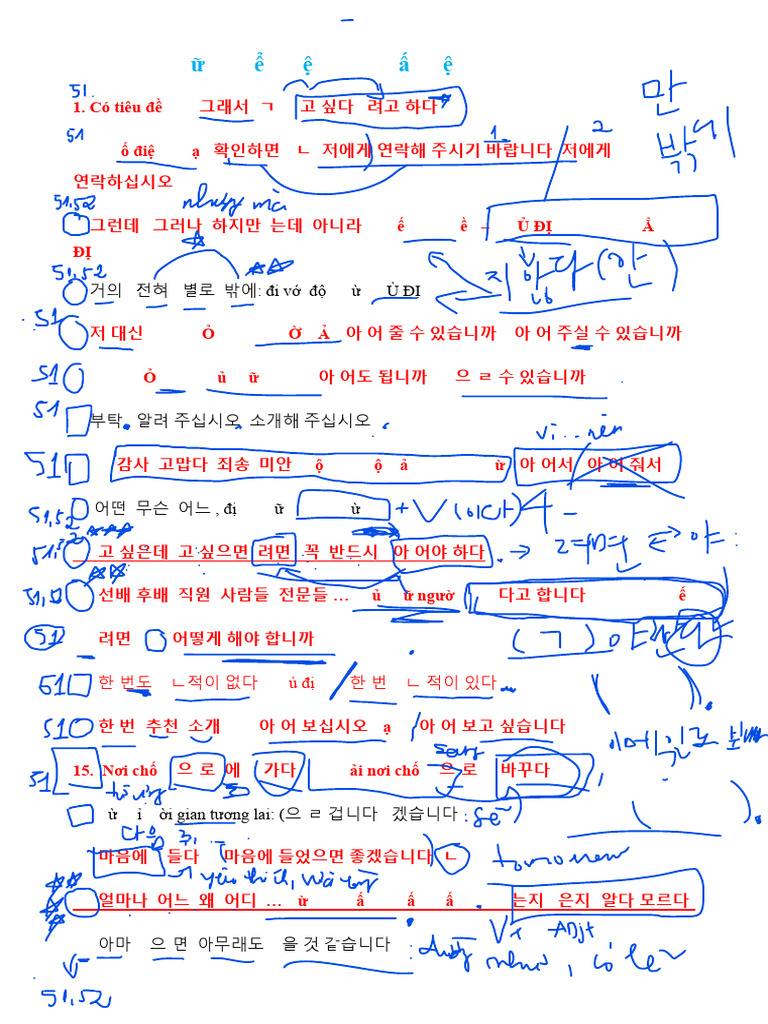 ữ ể ệ ấ ệ
51.
1. Có tiêu đề 그래서 ㄱ 고 싶다 려고 하다
만
51
1 2
밖에
ố điệ ạ 확인하면 ㄴ 저에게 연락해 주시기 바랍니다 저에게
연락하십시오
51,52 nhưng mà
그런데 그러나 하지만 는데 아니라 ế ề – Ủ ĐỊ Ả
ĐỊ
51,52
지 않다 (안)
거의 전혀 별로 밖에: đi vớ độ ừ Ủ ĐI
51 저 대신 Ỏ Ờ Ả 아 어 줄 수 있습니까 아 어 주실 수 있습니까
51 Ỏ ủ ữ 아 어도 됩니까 으 ㄹ 수 있습니까
51 부탁. 알려 주십시오 소개해 주십시오
vì...nên
51 감사 고맙다 죄송 미안 ộ ộ ả ừ 아 어서 아 어 줘서
51,52 어떤 무슨 어느 , đị ữ ừ + V (이다)
51,52 고 싶은데 고 싶으면 려면 꼭 반드시 아 어야 하다 → 려면 ↔ 야 :
선배 후배 직원 사람들 전문들 ... ủ ừ ngườ 다고 합니다 ế
51 려면 어떻게 해야 합니까
51 한 번도 ㄴ적이 없다 ủ đị / 한 번 ㄴ 적이 있다
51 한 번 추천 소개 아 어 보십시오 ạ 아 어 보고 싶습니다
이메일로
song
51 15. Nơi chố 으 로 에 가다 ải nơi chố 으 로 바꾸다
ừ ỉ ời gian tương lai: (으 ㄹ 겁니다 겠습니다 : sẽ )
다음 주
마음에 들다 마음에 들었으면 좋겠습니다 ㄴ tomorrow
yêu thích, hài lòng
얼마나 어느 왜 어디 ... ừ ấ ấ ấ . 는지 은지 알다 모르다
V Adjt
아마 으 면 아무래도 을 것 같습니다 : dường như, có lẽ
51,52